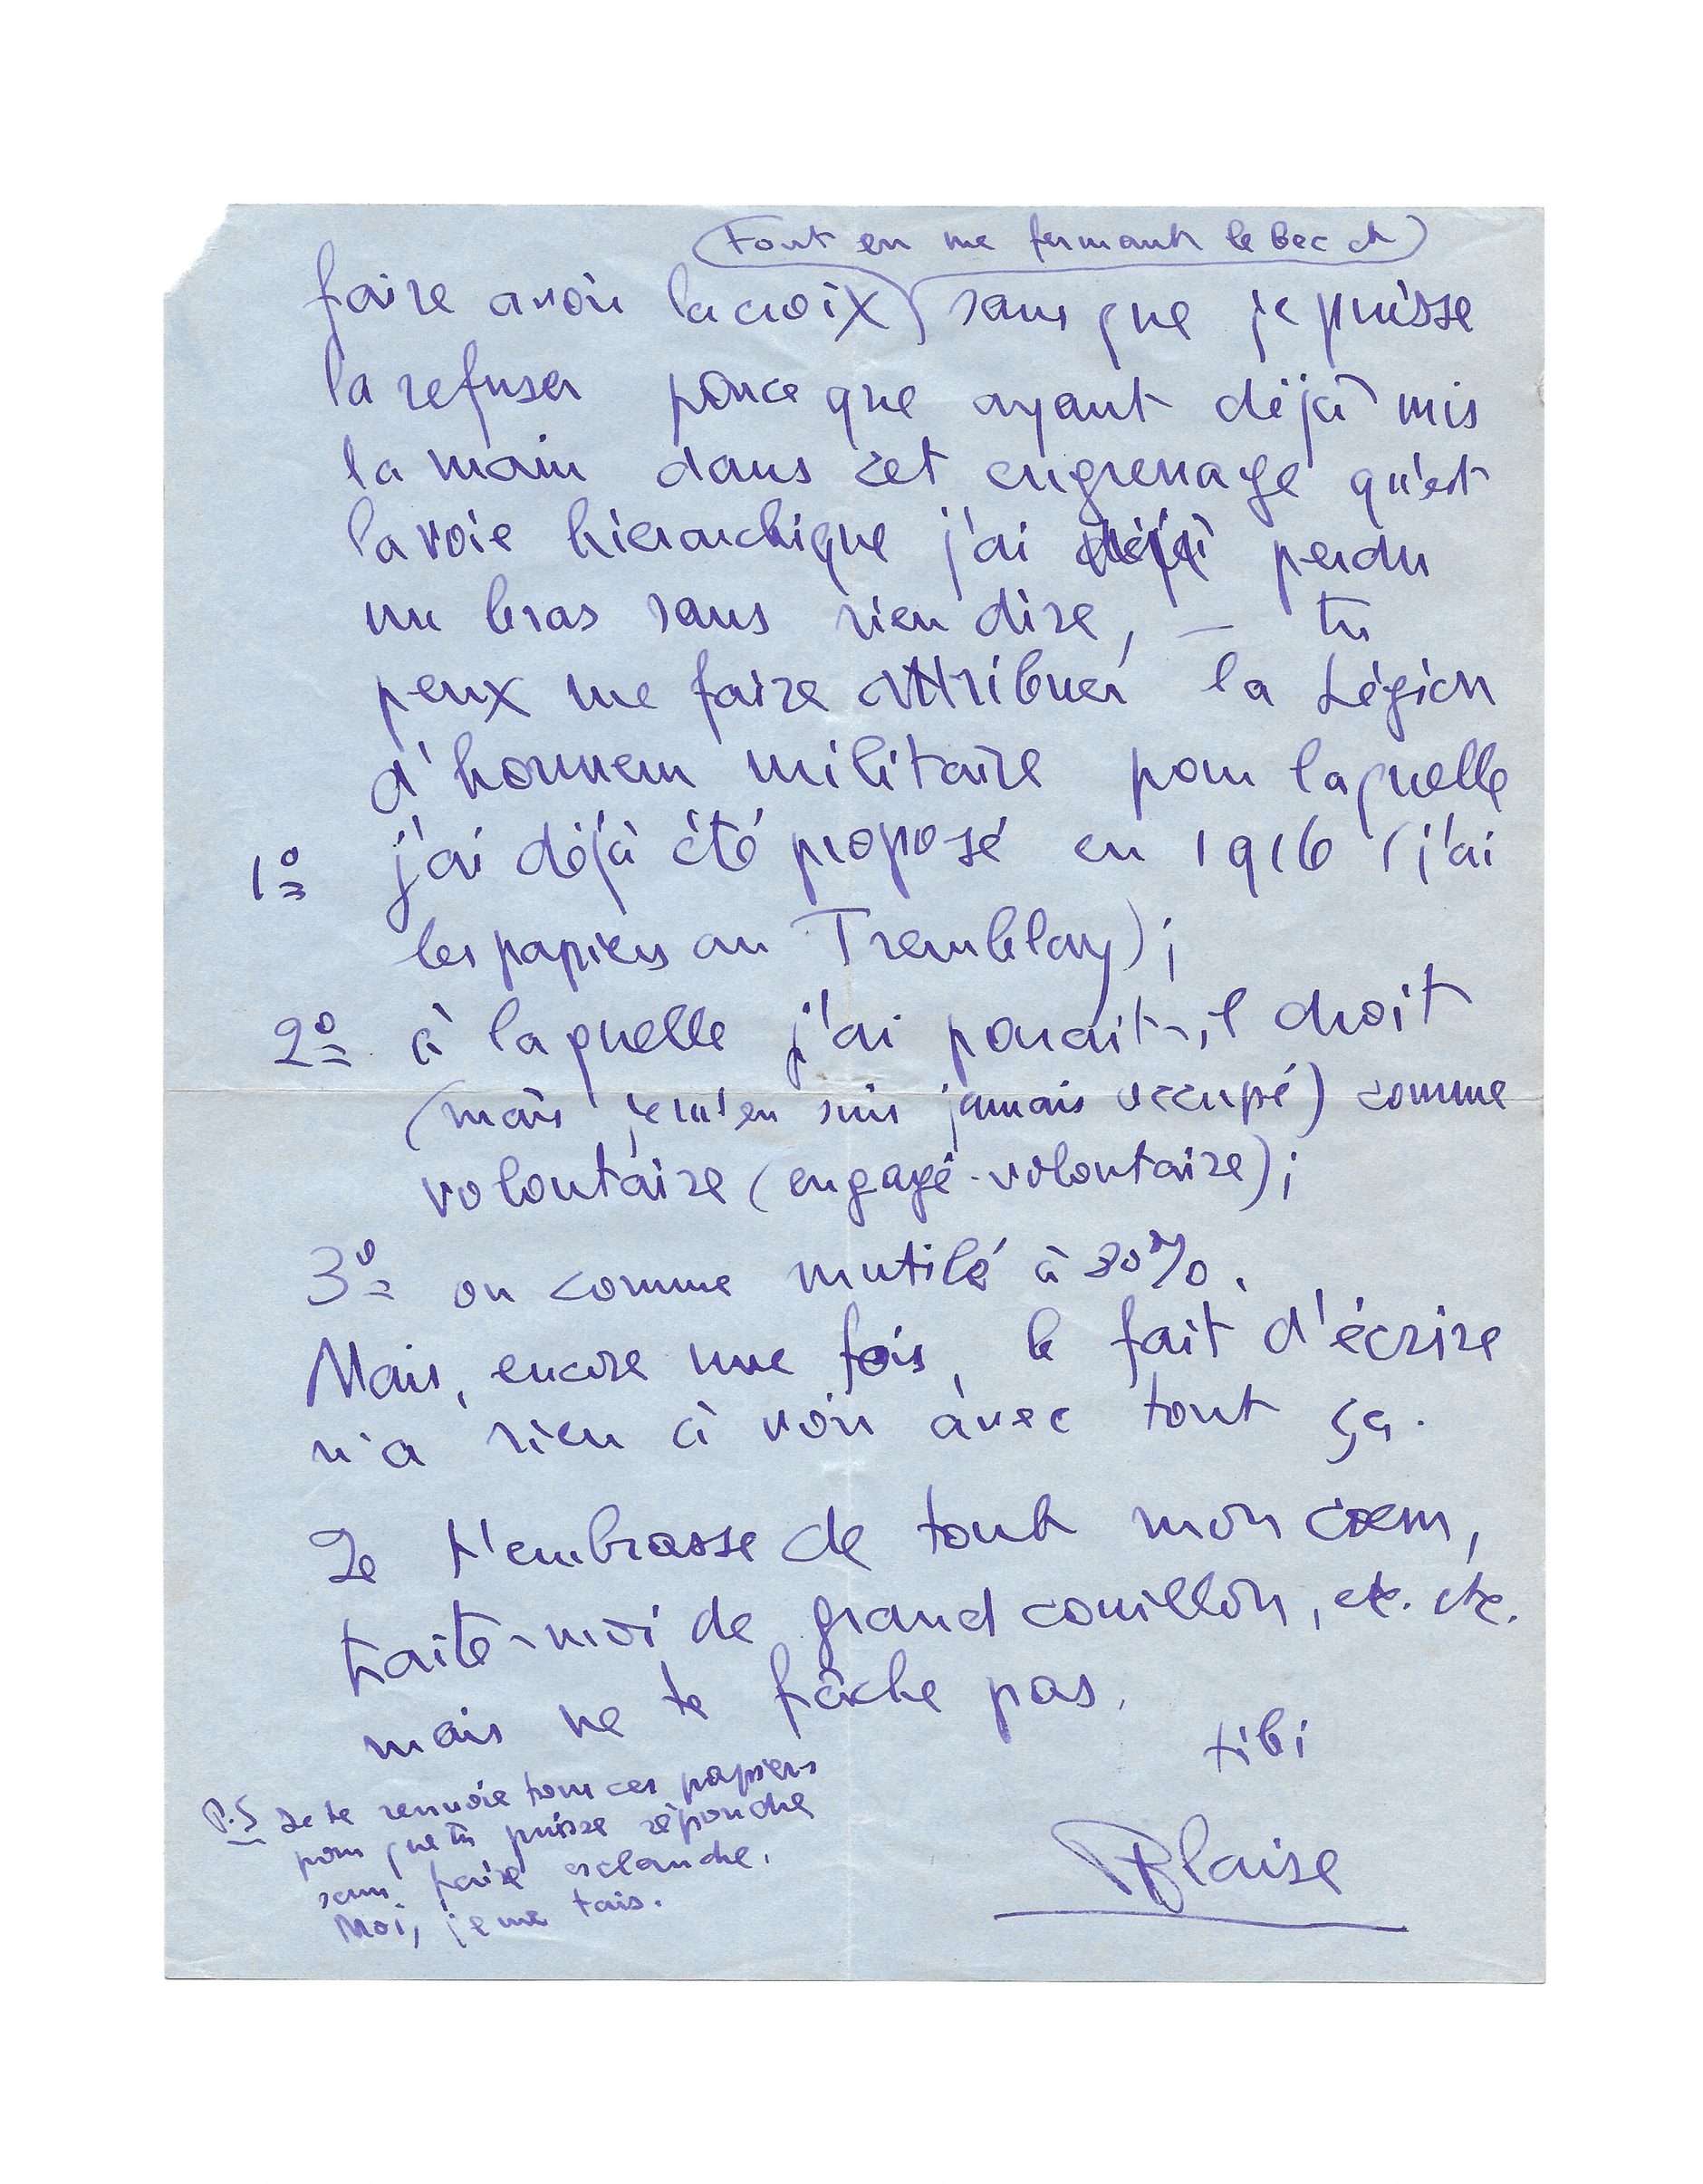 (tout en me fermant le bec et)
faire avoir la croix) sans que je puisse
la refuser parce que ayant déjà mis
la main dans cet engrenage qu'est
la voie hierarchique j'ai déjà perdu
un bras sans rien dire, – tu
peux me faire attribuer la Légion
d'honneur militaire pour laquelle
1º j'ai déjà été proposé en 1916 (j'ai
les papiers au Tremblay);
2º à laquelle j'ai parait-il droit
(mais je m'en suis jamais occupé) comme
volontaire (engagé-volontaire);
3º ou comme mutilé à 80%.
Mais, encore une fois, le fait d'écrire
n'a rien à voir avec tout ça.
Je t'embrasse de tout mon cœur,
traite-moi de grand couillon, etc. etc.
mais ne te fâche pas.
tibi
Blaise
P.S Je te renvoie tous ces papiers
pour que tu puisse répondre
sans faire esclandre.
Moi, je me tais.